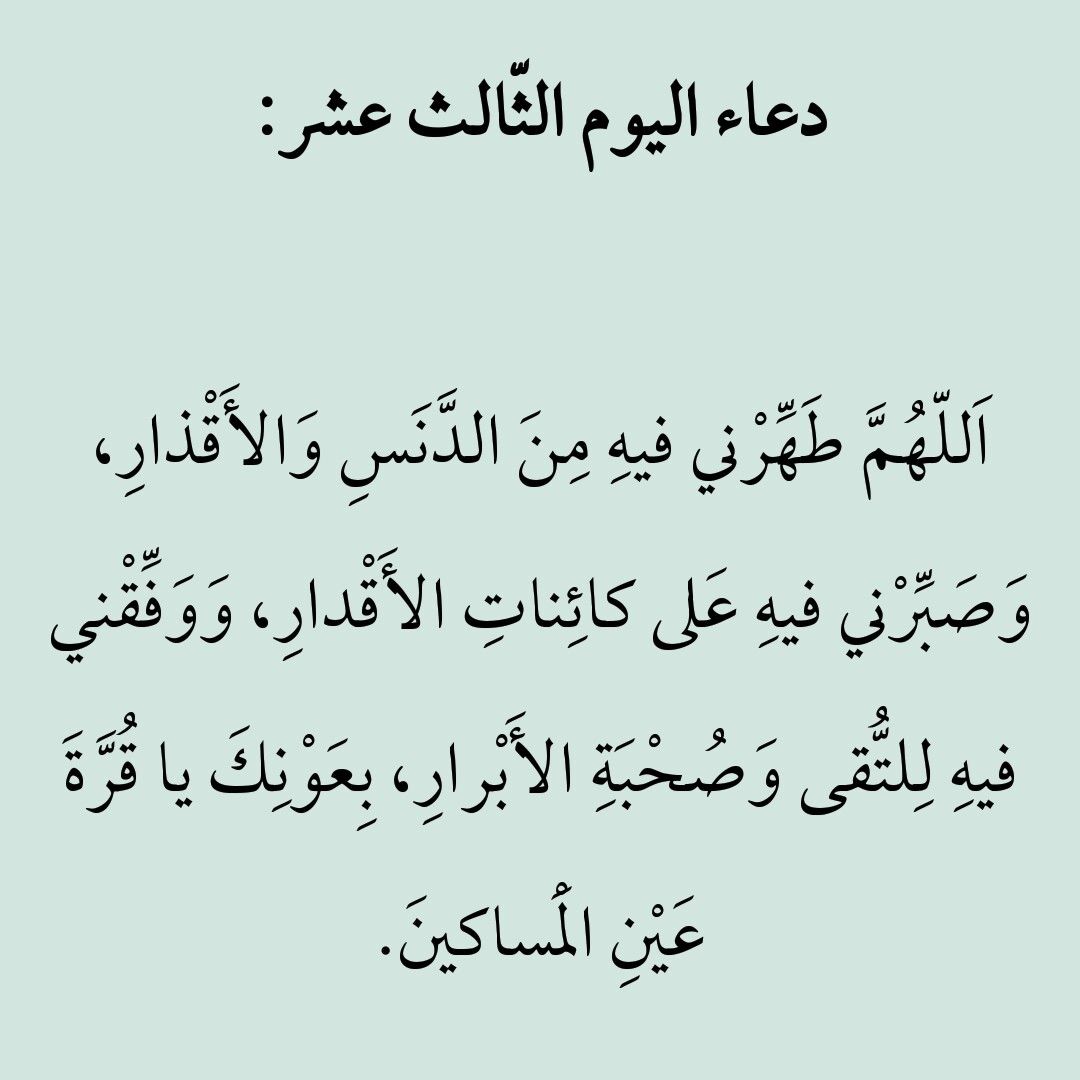 دعاء اليوم الثّالث عشر:
اَللّهُمَّ طَهِّرْني فيهِ مِنَ الدَّنَسِ وَالأَقْذارِ،
وَصَبِّرْني فيهِ عَلى كائِناتِ الأَقْدارِ، وَوَفِّقْني
فيهِ لِلتُّقى وَصُحْبَةِ الأَبْرارِ، بِعَوْنِكَ يا قُرَّةَ
عَيْنِ الْمَساكينَ.